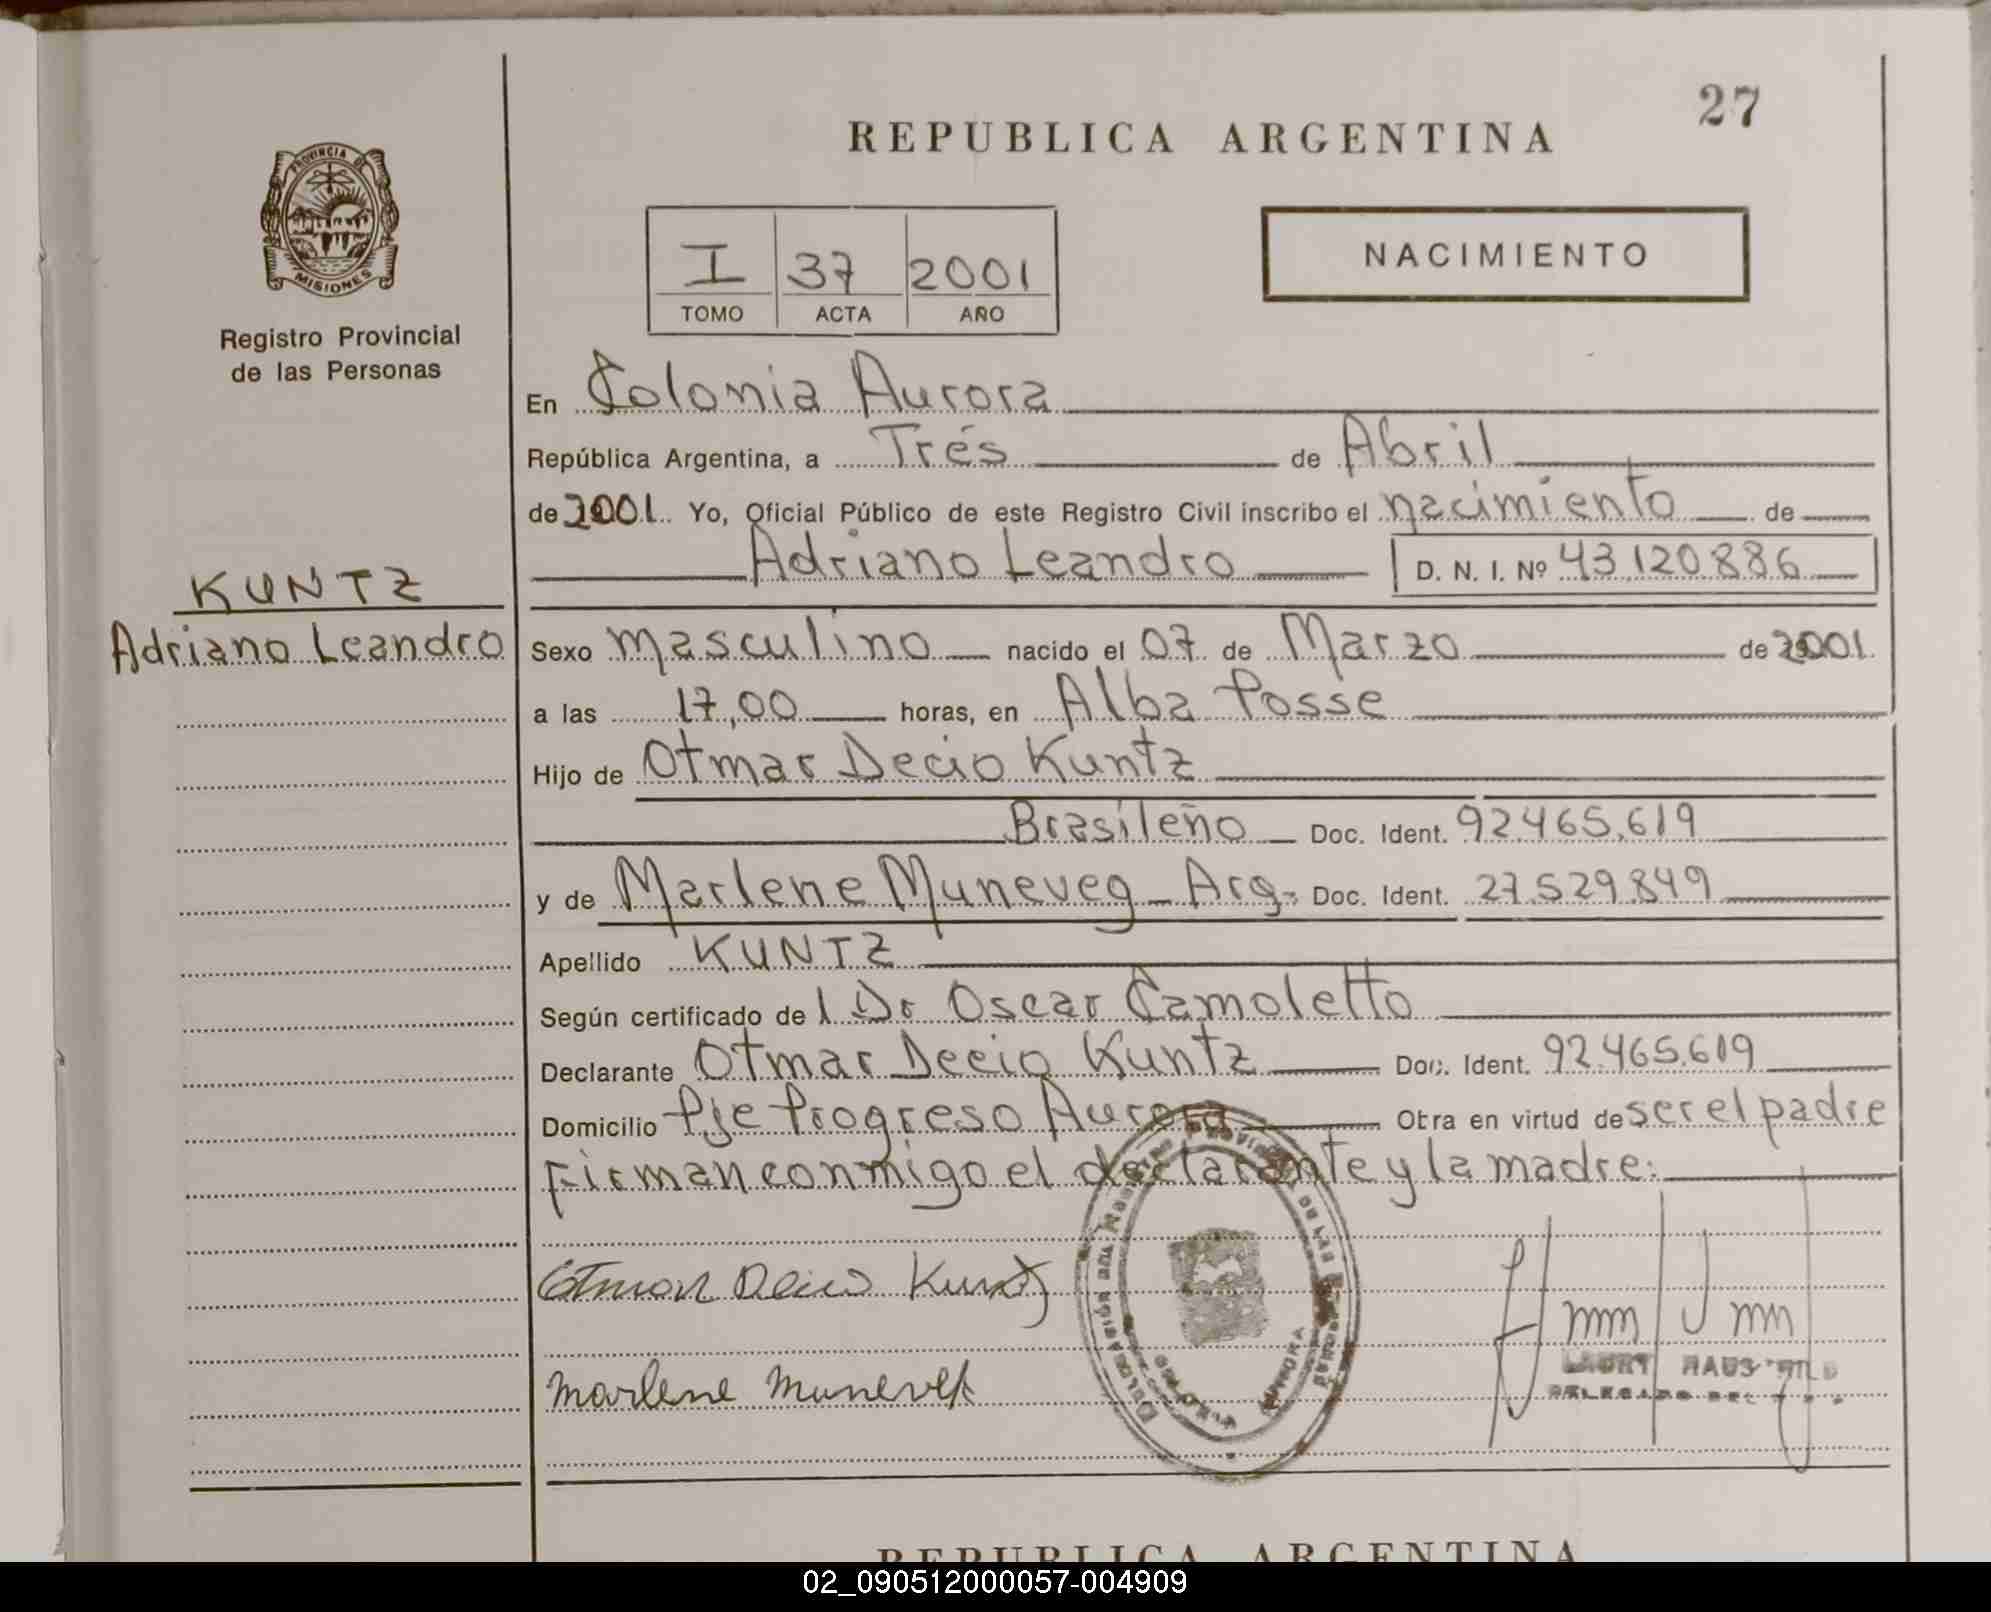 27
REPUBLICA ARGENTINA
PROVINCIA DE
MISIONES
Registro Provincial
de las Personas
I 37 2001
TOMO ACTA AÑO
NACIMIENTO
En Colonia Aurora
República Argentina, a Trés de Abril
de 2001. Yo, Oficial Público de este Registro Civil inscribo el nacimiento de
Adriano Leandro D. N. I. Nº 43,120.886
KUNTZ
Adriano Leandro
Sexo masculino nacido el 07 de Marzo de 2001.
a las 17,00 horas, en Alba Posse
Hijo de Otmar Decio Kuntz
Brasileño Doc. Ident. 92.465.619
y de Marlene Muneveg - Arg- Doc. Ident. 27.529.849
Apellido KUNTZ
Según certificado de l Dr Oscar Camoletto
Declarante Otmar Decio Kuntz Doc. Ident. 92.465.619
Domicilio Pje Progreso Aurora Otra en virtud de ser el padre
Firman conmigo el declarante y la madre.
Otmar Decio Kuntz
Marlene Munevek
REPUBLICA ARGENTINA
02_090512000057-004909